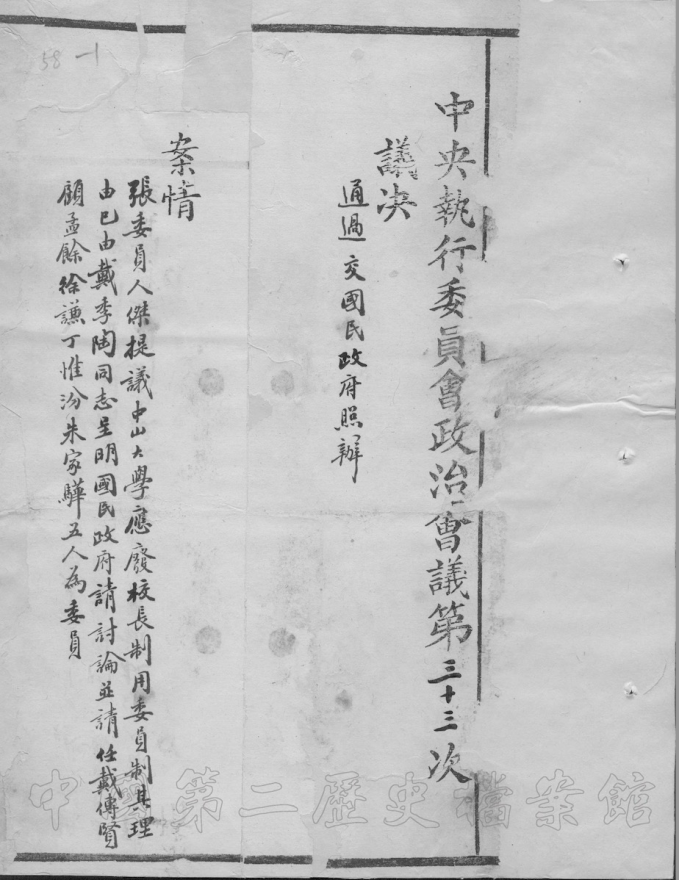 中央執行委員會政治會議第三十三次
議决
通過交國民政府照辦
案情
張委員人傑提議中山大學應廢校長制用委員制其理
由已由戴季陶同志呈明國民政府請討論並請任戴傳賢
顧孟餘徐謙丁惟汾朱家驊五人為委員
58 一
中國第二歷史檔案館